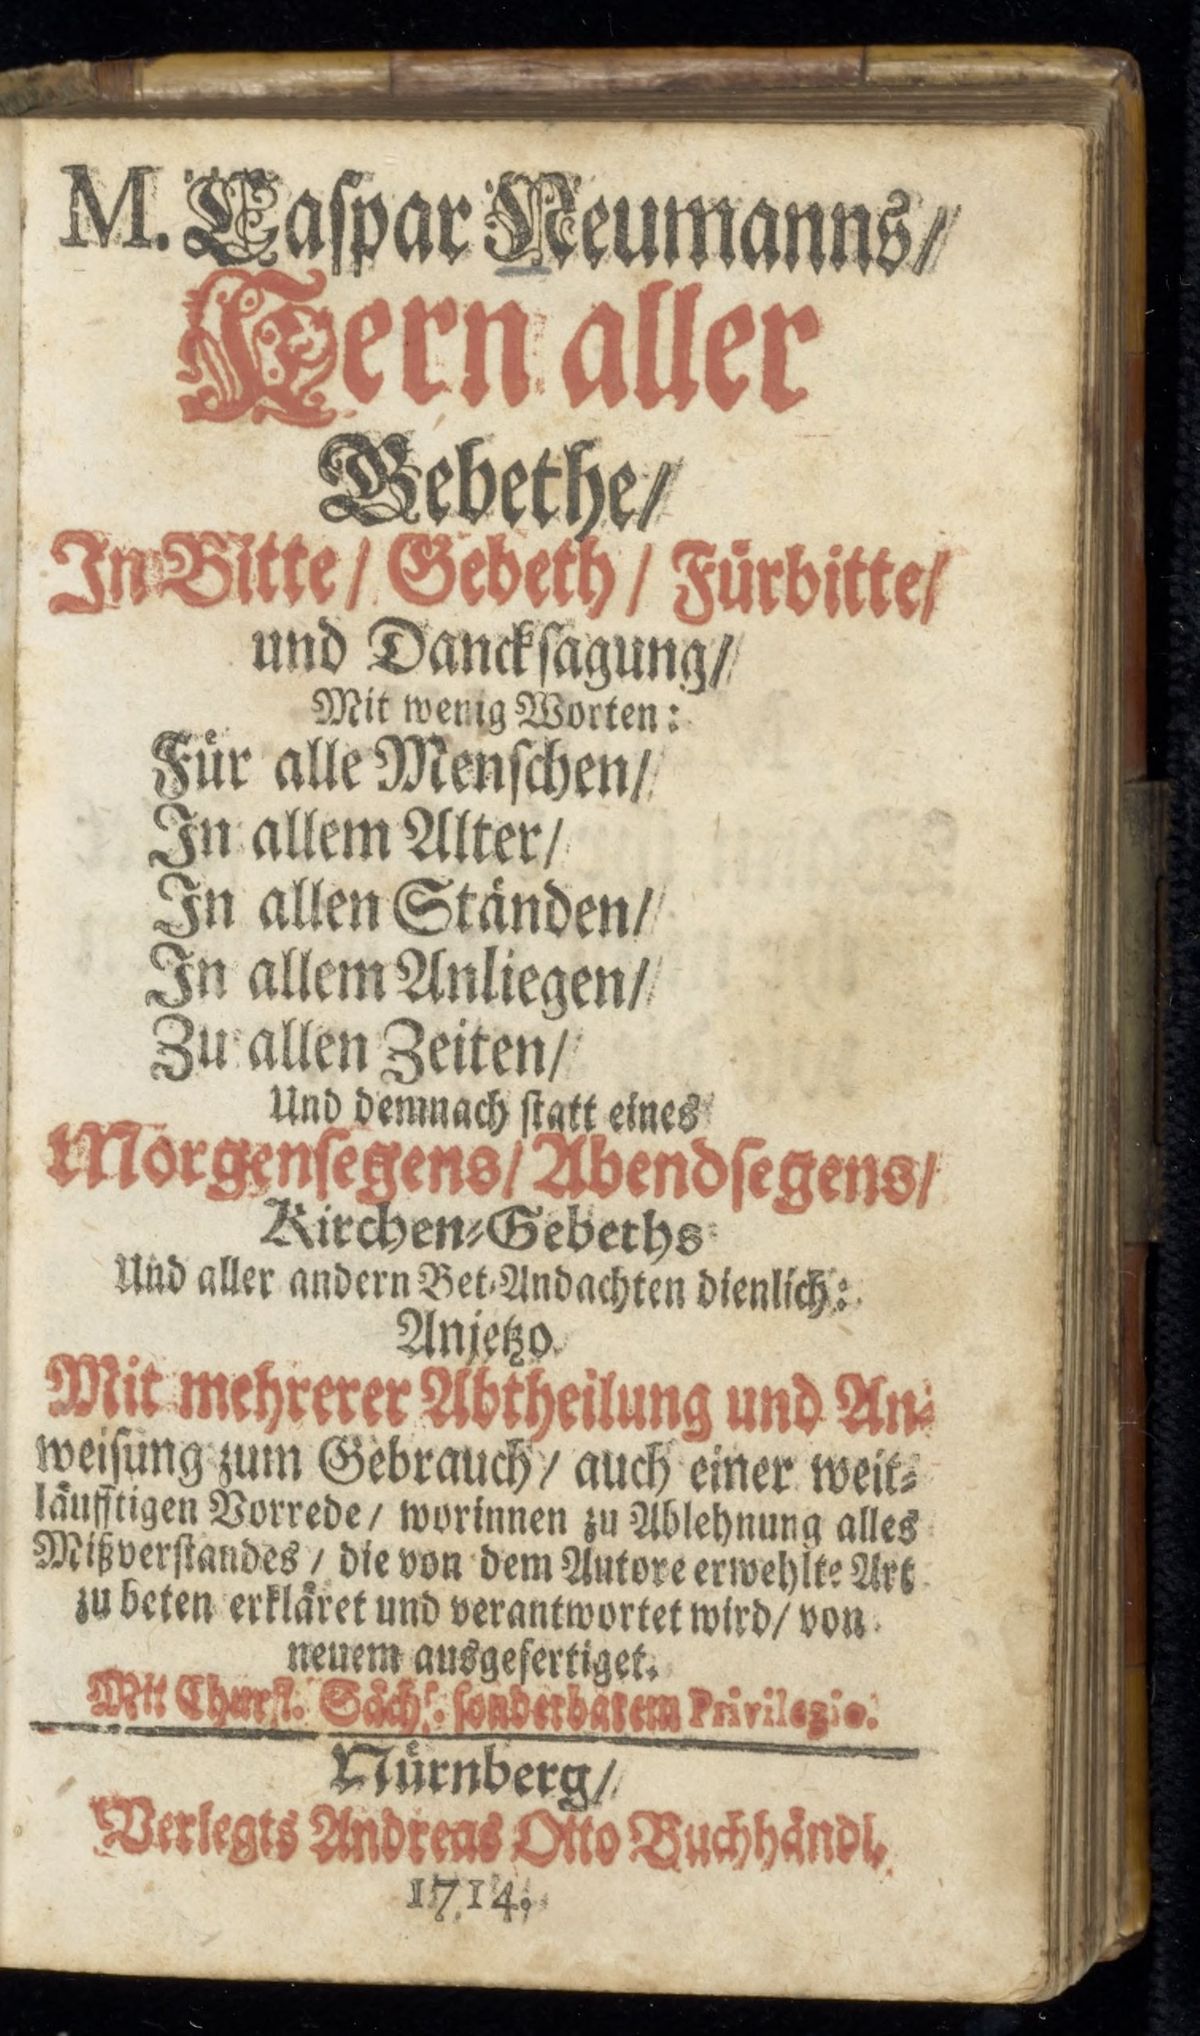 M. Caspar Neumanns/
Kern aller
Gebethe/
In Bitte/ Gebeth/ Fürbitte/
und Dancksagung/
Mit wenig Worten:
Für alle Menschen/
In allem Alter/
In allen Ständen/
In allem Anliegen/
Zu allen Zeiten/
Und demnach statt eines
Morgensegens/ Abendsegens/
Kirchen-Gebeths
Und aller andern Bet-Andachten dienlich:
Anjetzo
Mit mehrerer Abtheilung und An-
weisung zum Gebrauch/ auch einer weit-
läufftigen Vorrede/ worinnen zu Ablehnung alles
Mißverstandes/ die von dem Autore erwehlte Art
zu beten erkläret und verantwortet wird/ von
neuem ausgefertiget.
Mit Churfl. Sächs. sonderbarem Privilegio.
Nürnberg/
Verlegts Andreas Otto Buchhändl.
1714.